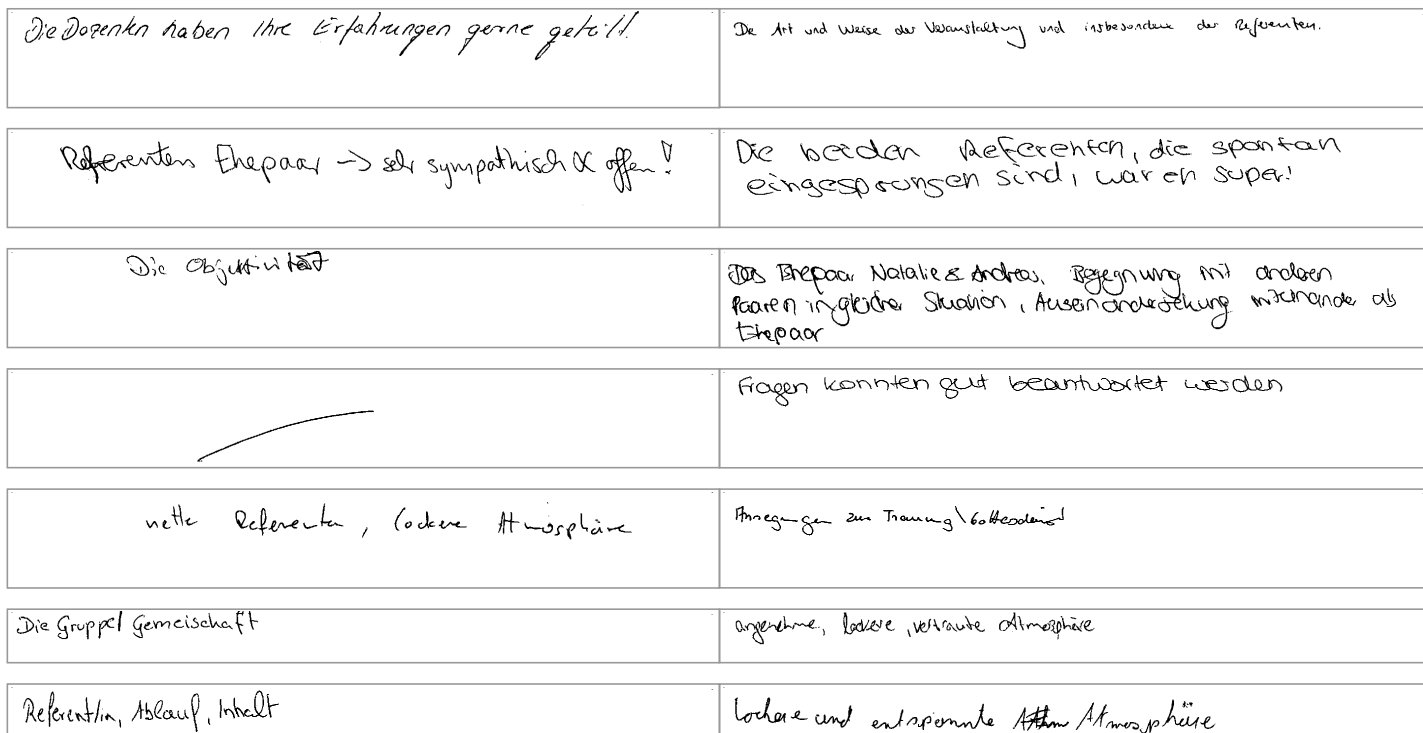 Die Dozenten haben Ihre Erfahrungen gerne geteilt.
Die Art und Weise der Veranstaltung und insbesondere der Referenten.
Referenten Ehepaar -> sehr sympathisch & offen!
Die beiden Referenten, die spontan
eingesprungen sind, waren super!
Die Objektivität
Das Ehepaar Natalie & Andreas, Begegnung mit anderen
Paaren in gleicher Situation, Auseinandersetzung miteinander als
Ehepaar
Fragen konnten gut beantwortet werden
nette Referenten, lockere Atmosphäre
Anregungen zur Trauung\Gottesdienst
Die Gruppe/Gemeischaft
angenehme, lockere, vertraute Atmosphäre
Referent/in, Ablauf, Inhalt
lockere und entspannte Atmosphäre